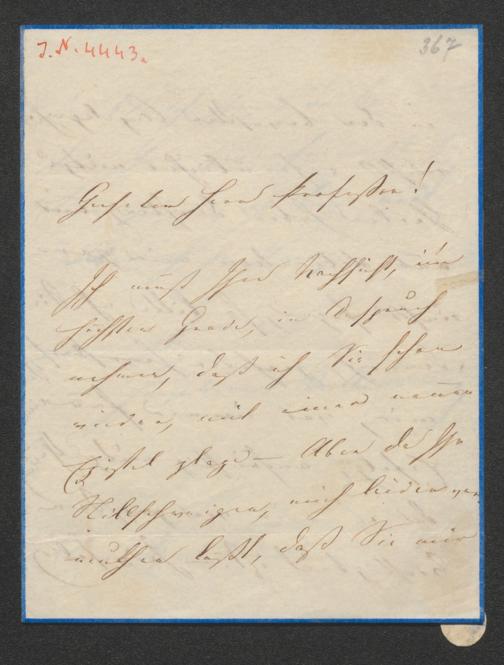 J.N. 4443.
367
Geehrter Herr Professor!
Ich muß Ihre Nachsicht, im
höchsten Grade, in Anspruch
nehmen, daß ich Sie schon
wieder, mit einer neuen
Epistel plage – Aber da Ihr
Stillschweigen, mich leider ver-
muthen läßt, daß Sie mir